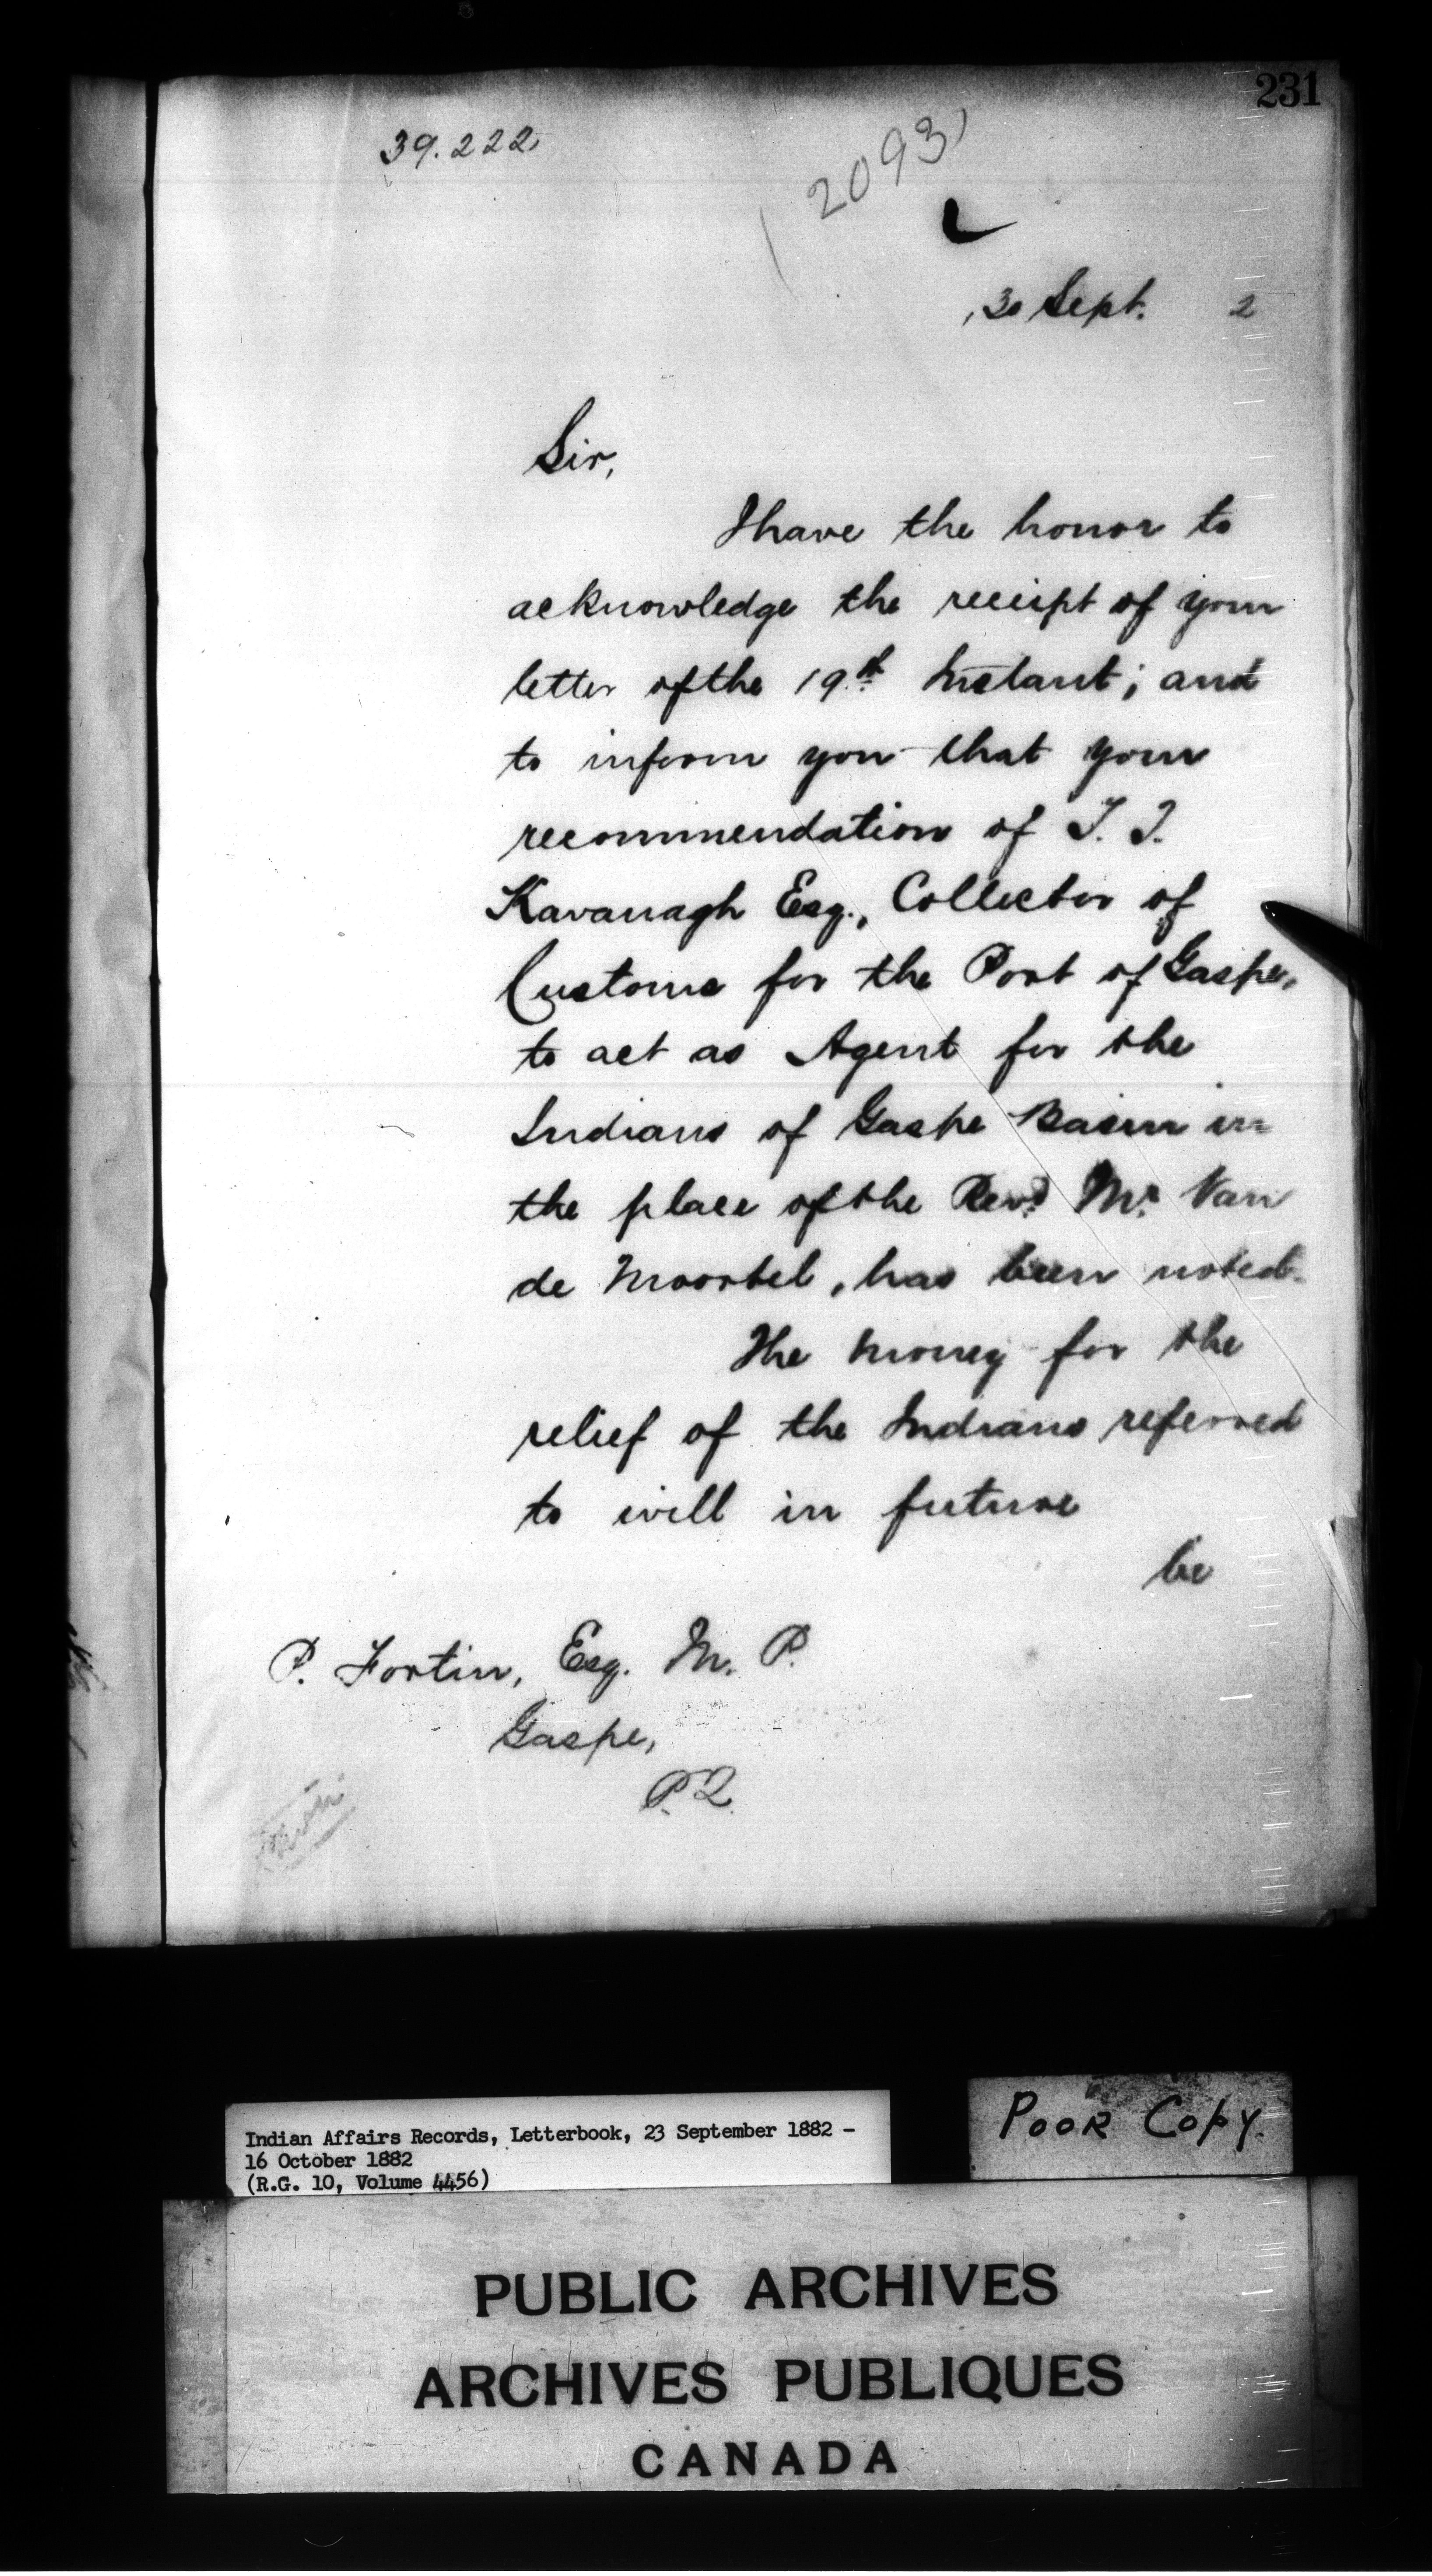 231
39.222
2093
30 Sept. 2
Sir,
I have the honor to
acknowledge the receipt of your
letter of the 19th Instant; and
to inform you that your
recommendation of J. J.
Kavanagh Esq., Collector of
Customs for the Port of Gaspe,
to act as Agent for the
Indians of Gaspe Basin in
the place of the Revd Mr Van
de Moortel, has been noted.
The money for the
relief of the Indians referred
to will in future
be
P. Fortin, Esq. M. P.
Gaspe,
P.Q.
Indian Affairs Records, Letterbook, 23 September 1882 -
16 October 1882
(R.G. 10, Volume 4456)
POOR COPY.
PUBLIC ARCHIVES
ARCHIVES PUBLIQUES
CANADA